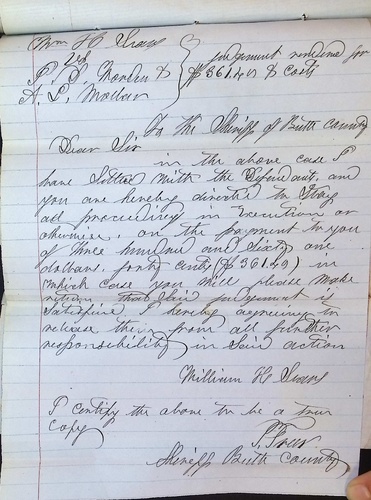 Wm H Evans
vs
P. D. Worden &
A. L. Mollar
judgement rendered for
$361.40 & Costs
To the Sheriff of Butte County
Dear Sir
in the above case I
have Settled with the Defendants, and
you are hereby directed to Stay
all proceedings in Execution or
otherwise, on the payment to you
of three hundred and Sixty one
dollars, forty cents ($361.40) in
which case you will please make
return that Said judgement is
Satisfied I hereby agreeing to
release them from all further
responsibility in Said action
William H Evans
I certify the above to be a true
Copy
Sheriff Butte County